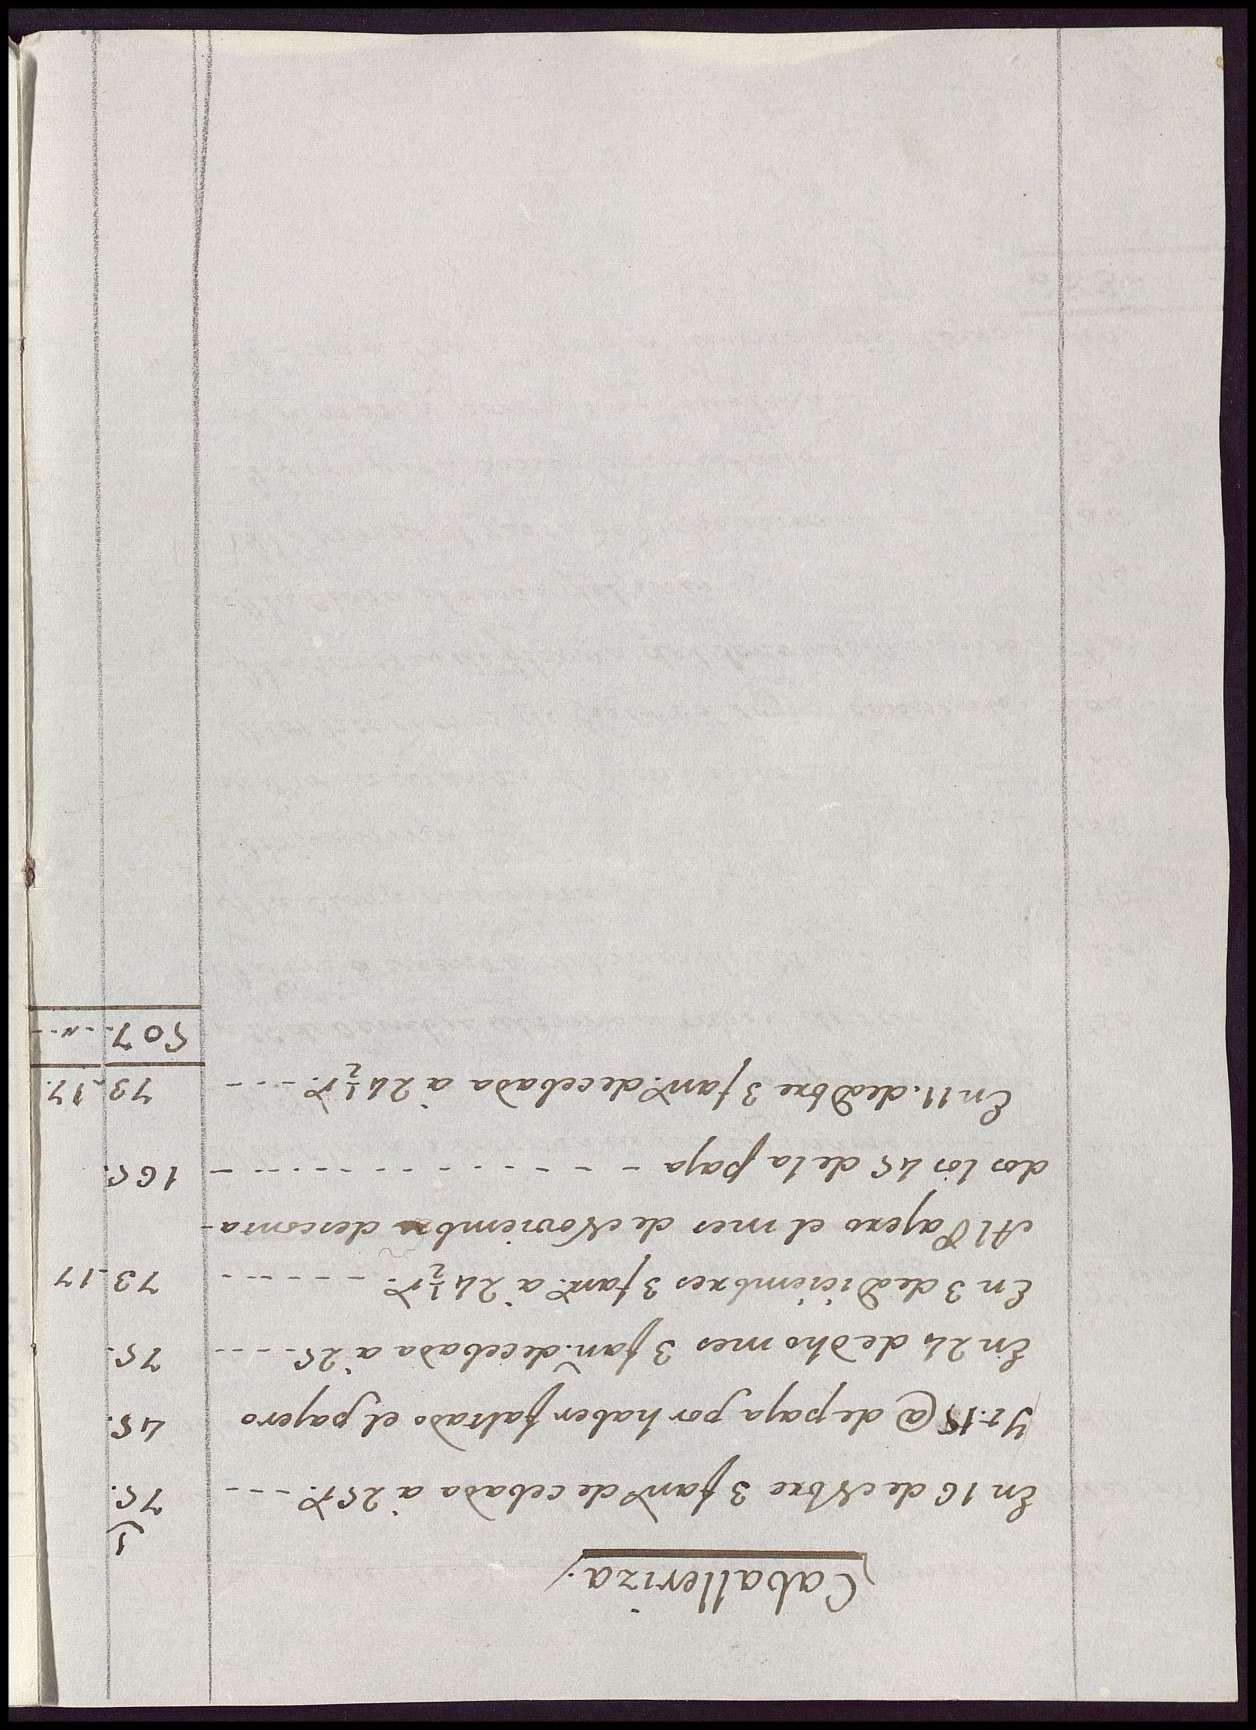 Caballeriza.
En 16 de Nbre 3 fan.s de cebada a 25 r.s - - - 75.
Yt. 15 @ de paja por haber faltado el pajero 45.
En 24 de dho mes 3 fan.s de cebada a 25 - - - 75.
En 3 de Diciembres 3 fan.s a 24 1/2 r.s - - - - - - 73..17
Al Pajero el mes de Noviembre descontados los 45 de la paja - - - - - - - - - - 165.
En 11. de Dbre 3 fan.s de cebada a 24 1/2 r.s - - - - 73..17.
507...."..